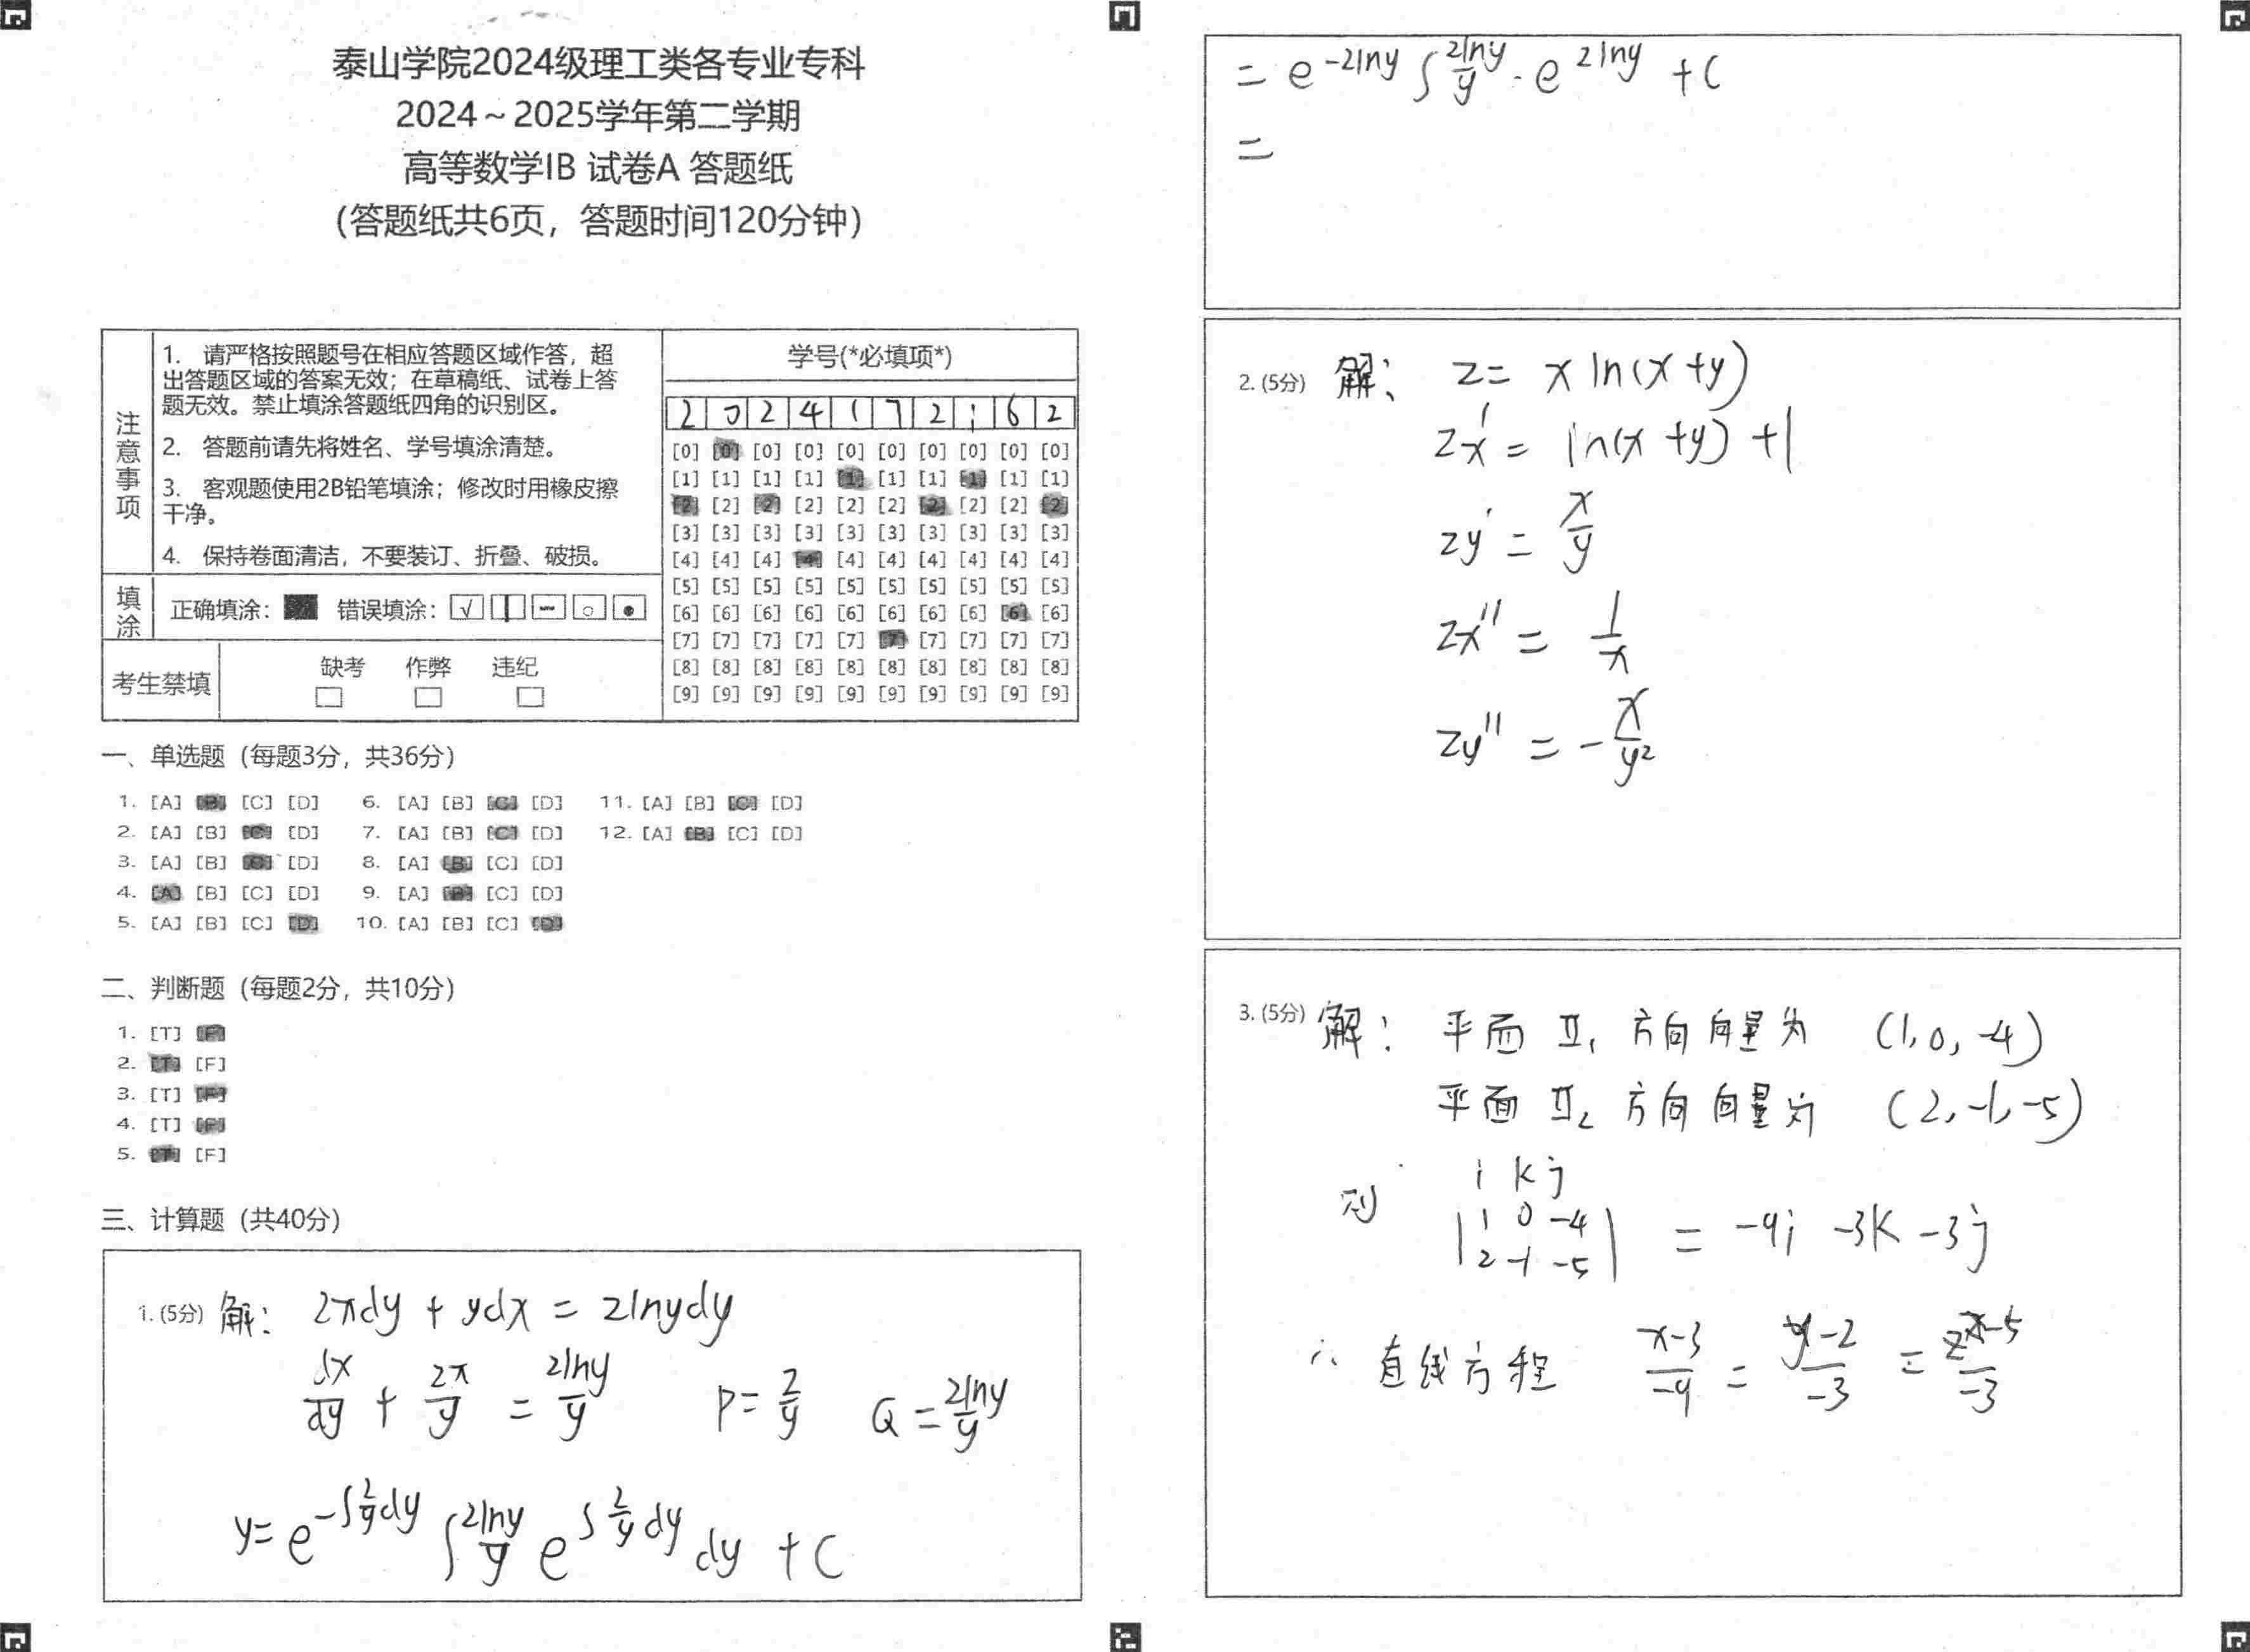 泰山学院2024级理工类各专业专科
2024～2025学年第二学期
高等数学IB 试卷A 答题纸
（答题纸共6页，答题时间120分钟）
注意事项
1. 请严格按照题号在相应答题区域作答，超
出答题区域的答案无效；在草稿纸、试卷上答
题无效。禁止填涂答题纸四角的识别区。
2. 答题前请先将姓名、学号填涂清楚。
3. 客观题使用2B铅笔填涂；修改时用橡皮擦
干净。
4. 保持卷面清洁，不要装订、折叠、破损。
填涂
正确填涂： 错误填涂：
考生禁填
缺考 作弊 违纪
学号(*必填项*)
2 0 2 4 1 7 2 1 6 2
[0] [0] [0] [0] [0] [0] [0] [0] [0] [0]
[1] [1] [1] [1] [1] [1] [1] [1] [1] [1]
[2] [2] [2] [2] [2] [2] [2] [2] [2] [2]
[3] [3] [3] [3] [3] [3] [3] [3] [3] [3]
[4] [4] [4] [4] [4] [4] [4] [4] [4] [4]
[5] [5] [5] [5] [5] [5] [5] [5] [5] [5]
[6] [6] [6] [6] [6] [6] [6] [6] [6] [6]
[7] [7] [7] [7] [7] [7] [7] [7] [7] [7]
[8] [8] [8] [8] [8] [8] [8] [8] [8] [8]
[9] [9] [9] [9] [9] [9] [9] [9] [9] [9]
一、单选题（每题3分，共36分）
1. [A] [B] [C] [D] 6. [A] [B] [C] [D] 11. [A] [B] [C] [D]
2. [A] [B] [C] [D] 7. [A] [B] [C] [D] 12. [A] [B] [C] [D]
3. [A] [B] [C] [D] 8. [A] [B] [C] [D]
4. [A] [B] [C] [D] 9. [A] [B] [C] [D]
5. [A] [B] [C] [D] 10. [A] [B] [C] [D]
二、判断题（每题2分，共10分）
1. [T] [F]
2. [T] [F]
3. [T] [F]
4. [T] [F]
5. [T] [F]
三、计算题（共40分）
1. (5分) 解： 2xdy + ydx = 2lnydy
dx/dy + 2x/y = 2lny/y P = 2/y Q = 2lny/y
y= e^{-∫2/y dy} ∫ 2lny/y e^{∫2/y dy} dy + C
= e^{-2lny} ∫ 2lny/y · e^{2lny} + C
=
2. (5分) 解： z = x ln(x+y)
zx' = ln(x+y) + 1
zy' = x/y
zx'' = 1/x
zy'' = - x/y²
3. (5分) 解： 平面 Π₁ 方向向量为 (1, 0, -4)
平面 Π₂ 方向向量为 (2, -1, -5)
i k j
则 | 1 0 -4 | = -4i -3k -3j
| 2 -1 -5 |
∴ 直线方程 x-3/-4 = y-2/-3 = z-5/-3